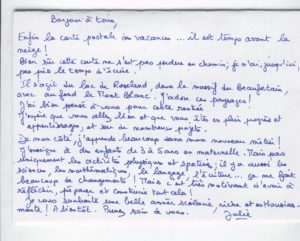 Bonjour à tous,
Enfin la carte postale des vacances ... il est temps avant la
neige !
Bien sûr cette carte ne s'est pas perdue en chemin; je n'ai, jusqu'ici,
pas pris le temps d'écrire.
Il s'agit du lac de Roselend, dans le massif du Beaufortain,
avec au fond le Mont Blanc. J'adore ces paysages !
J'ai bien pensé à vous pour cette rentrée.
J'espère que vous allez bien et que vous êtes en plein projets et
apprentissages, et sur de nombreux projets.
De mon côté, j'apprends beaucoup dans mon nouveau métier !
des enfants de 3 à 5 ans en maternelle. Mais pas
uniquement les activités physiques et sportives, il y a aussi les
sciences, les mathématiques, le langage, l'écriture... ça me fait
beaucoup de changements ! Mais c'est très motivant d'avoir à
réfléchir, et construire tout cela !
Je vous souhaite une belle année scolaire, riche et
! A bientôt. Prenez soin de vous.
Julie